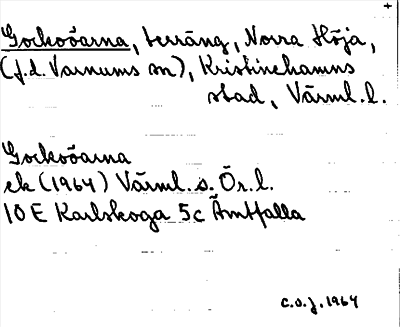 +
Gockoöarna, terräng, Norra Höja,
(f.d. Varnums sn), Kristinehamns
stad, Värml. l.
Gockoöarna
ek (1964) Värml. o. Ör. l.
10 E Karlskoga 5c Ämtfalla
C.O.J. 1964